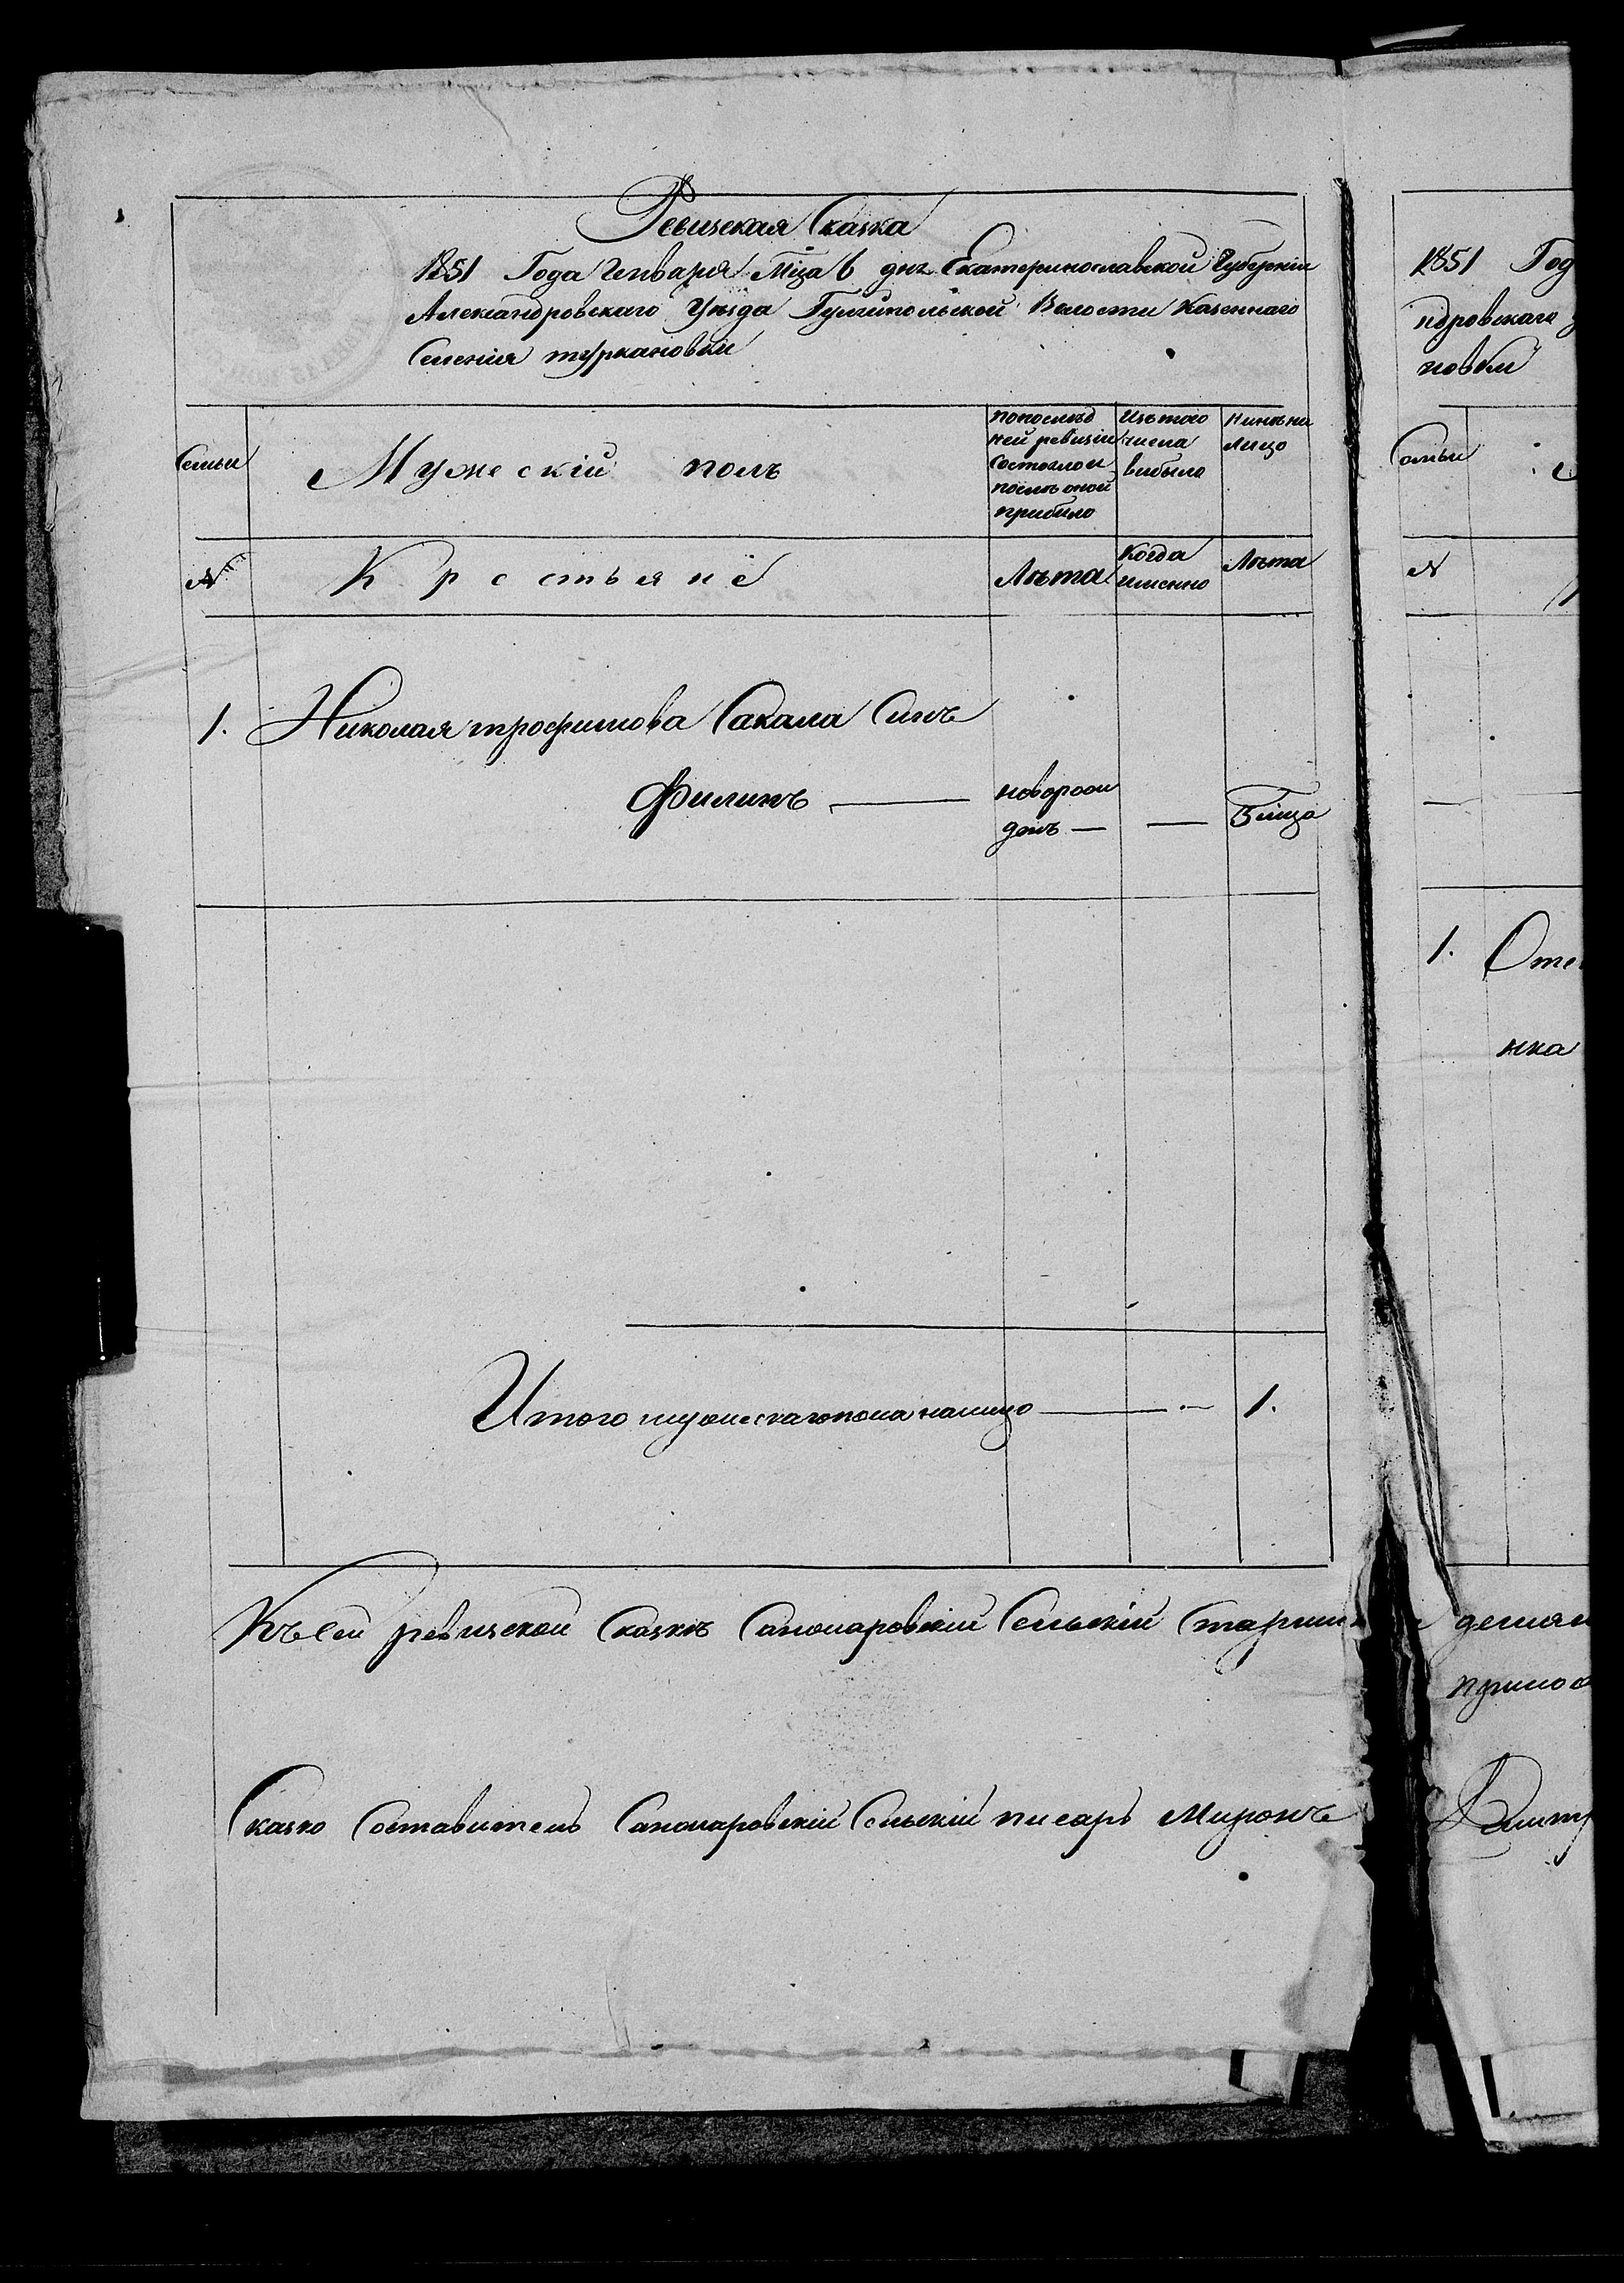 Ревизская Сказка
1851 Года Генваря Мца 6 дня Екатеринославской Губерніи
Александровскаго Уѣзда Гуляйпольской Волости Казеннаго
Селенія туркановки
Семьи
Мужескій полъ
попослѣд
ней ревизіи
Состояло и
послѣ оной
прибило
Изътого
числа
вибыло
Нинѣ на
лицо
№
Крестьяне
Лѣта
Когда
именно
Лѣта
1. Николая трофимова Сакала Синъ
Филипъ — ново рож
денъ — — 5 мца
Итого мужескаго пола налицо — — 1.
Къ сей ревизской Сказкѣ Сапонаровскій Сельскій Старши
Сказко Составитель Сапонаровскій Сельскій писарь Миронъ
1851 Год
ндровскаго
новки
Семьи
№
1.
нка